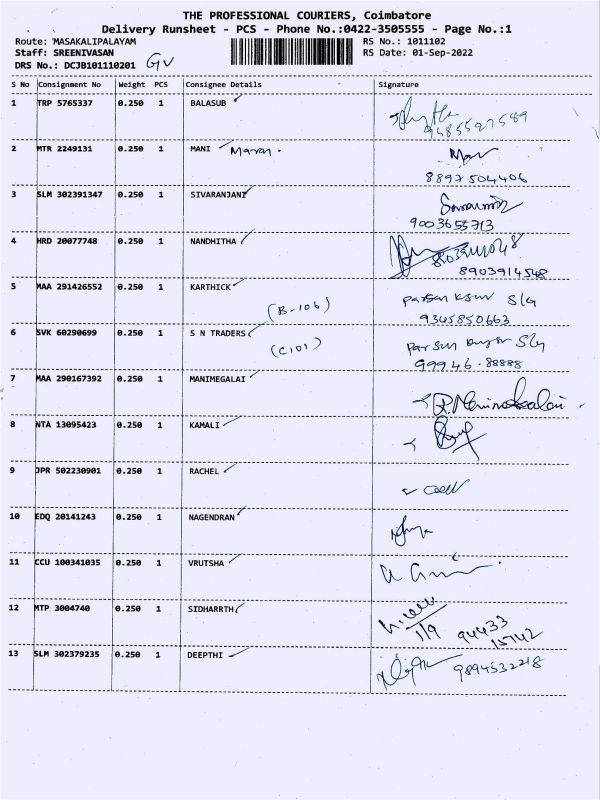 THE PROFESSIONAL COURIERS, Coimbatore
Delivery Runsheet - PCS - Phone No.:0422-3505555 - Page No.:1
Route: MASAKALIPALAYAM RS No.: 1011102
Staff: SREENIVASAN RS Date: 01-Sep-2022
DRS No.: DCJB101110201 GV
S No Consignment No Weight PCS Consignee Details Signature
1 TRP 5765337 0.250 1 BALASUB
9485527589
2 MTR 2249131 0.250 1 MANI Maran.
8897504406
3 SLM 302391347 0.250 1 SIVARANJANI
9003655713
4 HRD 20077748 0.250 1 NANDHITHA
8903914548
5 MAA 291426552 0.250 1 KARTHICK
(B-106) 9345850663
6 SVK 60290699 0.250 1 S N TRADERS
(C101) 99946-88888
7 MAA 290167392 0.250 1 MANIMEGALAI
8 NTA 13095423 0.250 1 KAMALI
9 JPR 502230901 0.250 1 RACHEL
10 EDQ 20141243 0.250 1 NAGENDRAN
11 CCU 100341035 0.250 1 VRUTSHA
12 MTP 3004740 0.250 1 SIDHARRTH
1/9 94433
15742
13 SLM 302379235 0.250 1 DEEPTHI 9894532218